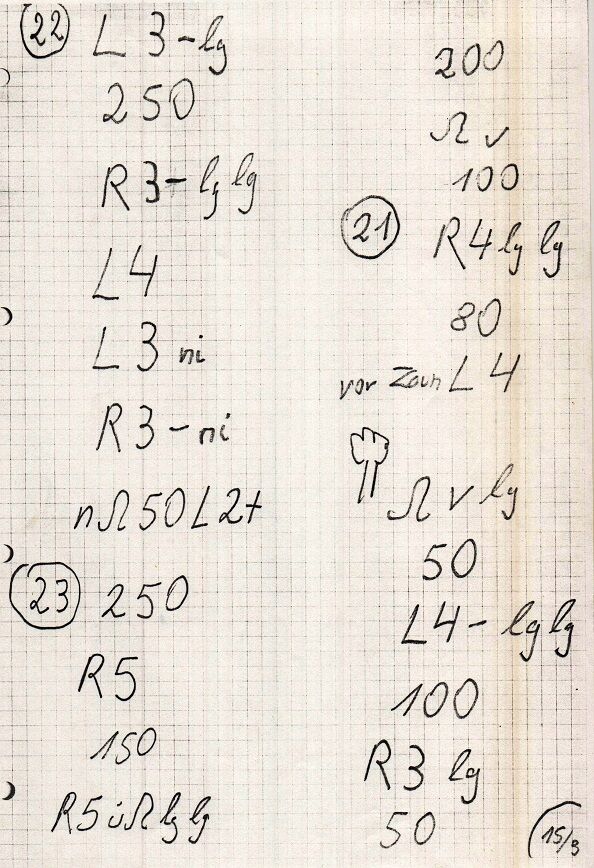 22 L 3-lg
250
R3-lg lg
L4
L3 ni
R3-ni
nΩ50L2+
23 250
R5
150
R5üΩ lg lg
200
Ω v
100
21 R4 lg lg
80
vor Zaun L4
Ω v lg
50
L4- lg lg
100
R3 lg
50
15/3